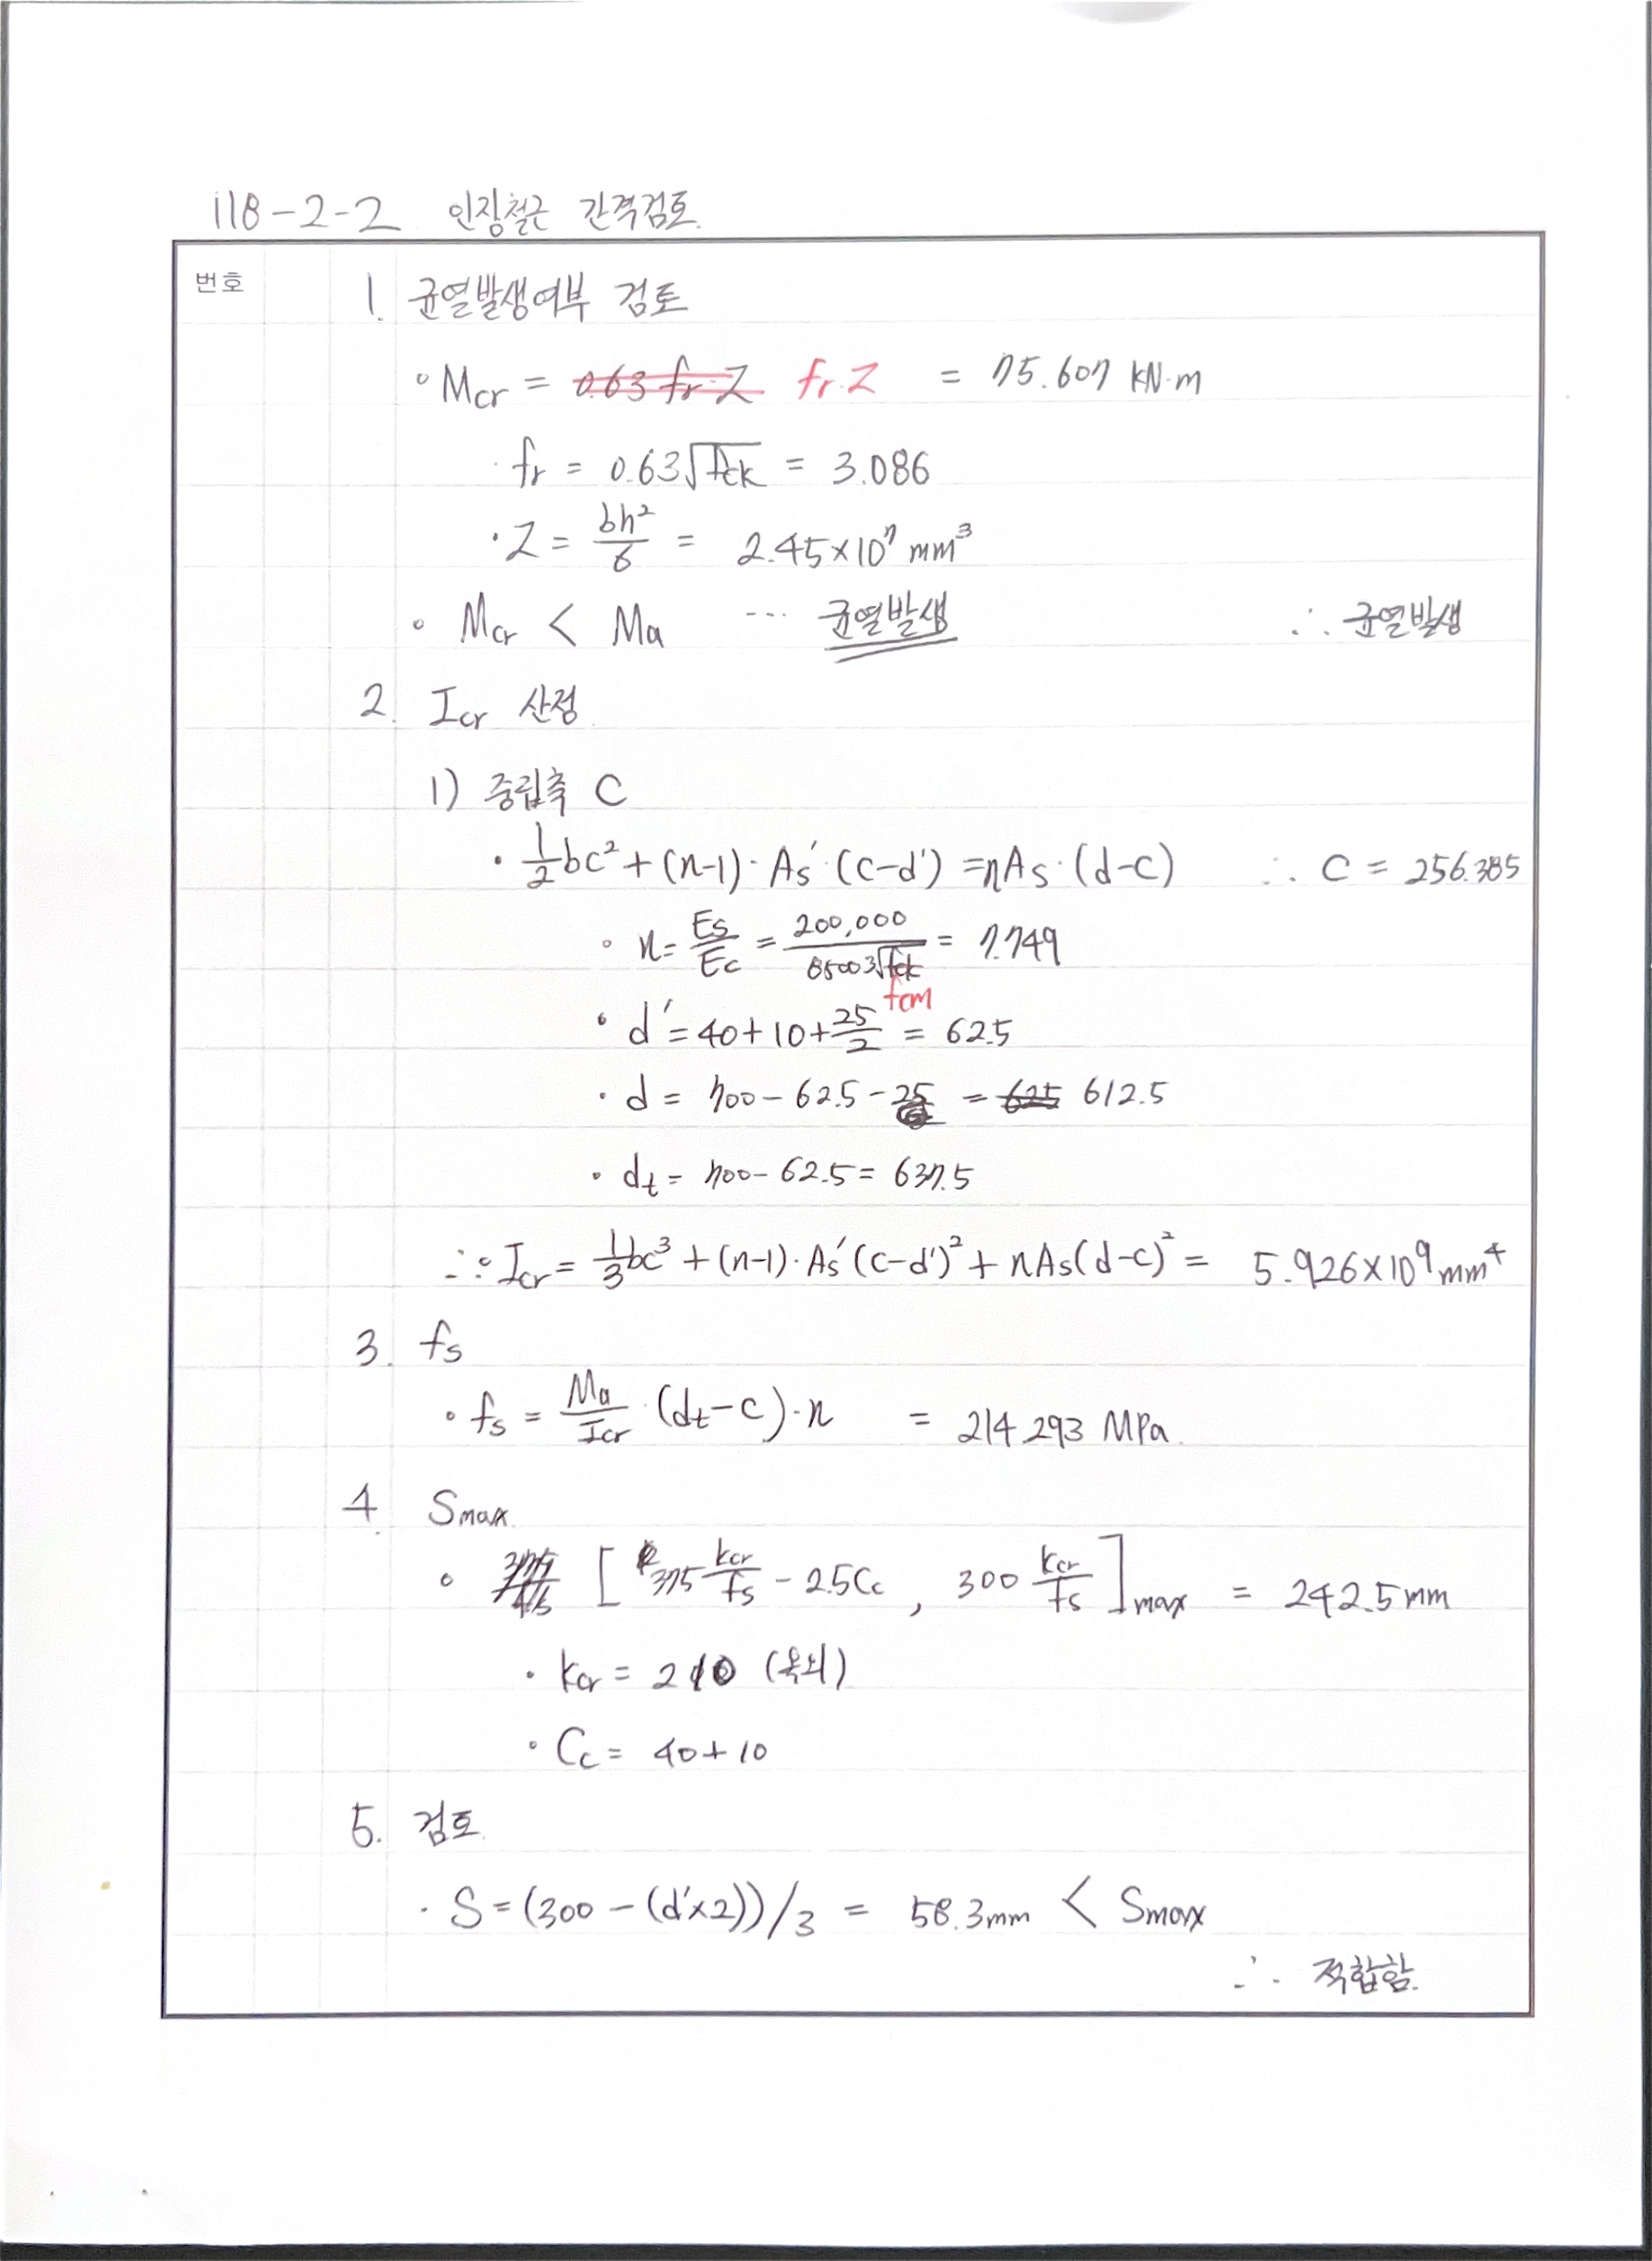 118-2-2 인장철근 간격검토.
번호
1. 균열발생여부 검토
◦ Mcr = 0.63 fr·Z fr·Z = 75.607 kN·m
· fr = 0.63√fck = 3.086
· Z = bh²/6 = 2.45×10⁷ mm³
◦ Mcr < Ma ··· 균열발생 ∴ 균열발생
2. Icr 산정
1) 중립축 C
· 1/2 bc² + (n-1)· As'·(c-d') = nAs·(d-c) ∴ C = 256.385
◦ n = Es/Ec = 200,000/8500 3√fck = 7.749
fcm
· d' = 40+10+25/2 = 62.5
· d = 700 - 62.5 - 25 = 625 612.5
· dt = 700 - 62.5 = 637.5
∴ ◦ Icr = 1/3 bc³ + (n-1)· As'(c-d')² + nAs(d-c)² = 5.926×10⁹ mm⁴
3. fs
◦ fs = Ma/Icr ·(dt-c)·n = 214.293 MPa.
4. Smax.
◦ [ 375 kcr/fs - 2.5Cc , 300 kcr/fs ]max = 242.5 mm
· kcr = 210 (옥외)
· Cc = 40+10
5. 검토.
· S = (300 - (d'×2))/3 = 58.3mm < Smax
∴ 적합함.